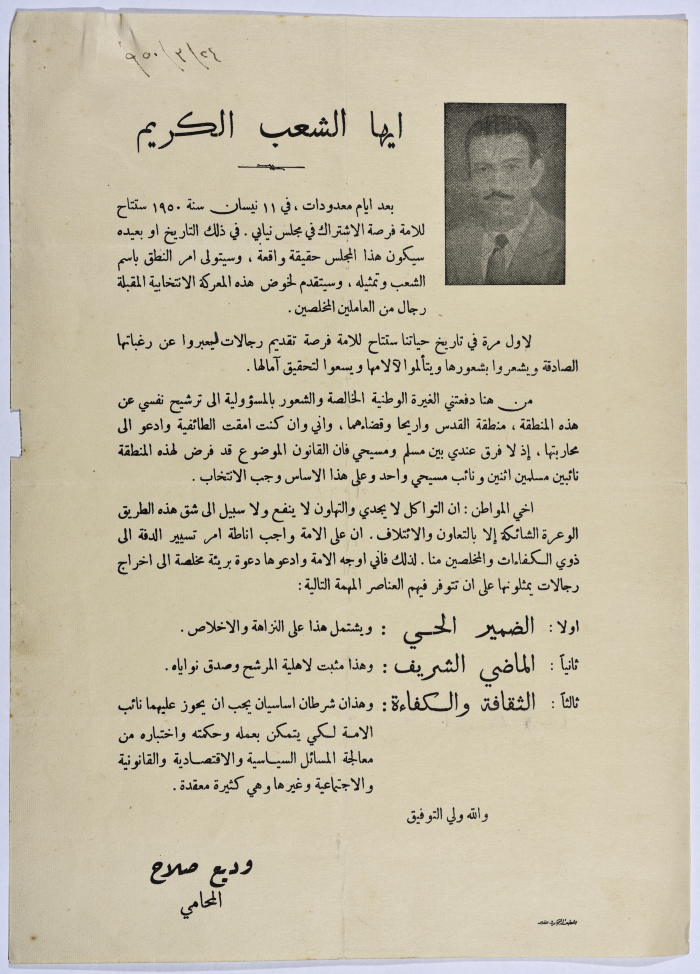 ٩٥٠/٣/٢٤
ايها الشعب الكريم
بعد ايام معدودات ، في ١١ نيسان سنة ١٩٥٠ ستتاح
للامة فرصة الاشتراك في مجلس نيابي . في ذلك التاريخ او بعيده
سيكون هذا المجلس حقيقة واقعة ، وسيتولى امر النطق باسم
الشعب وتمثيله ، وسيتقدم لخوض هذه المعركة الانتخابية المقبلة
رجال من العاملين المخلصين .
لاول مرة في تاريخ حياتنا ستتاح للامة فرصة تقديم رجالات ليعبروا عن رغباتها
الصادقة ويشعروا بشعورها ويتألموا لآلامها ويسعوا لتحقيق آمالها .
من هنا دفعتني الغيرة الوطنية الخالصة والشعور بالمسؤولية الى ترشيح نفسي عن
هذه المنطقة ، منطقة القدس واريحا وقضاءهما ، واني وان كنت امقت الطائفية وادعو الى
محاربتها ، إذ لا فرق عندي بين مسلم ومسيحي فان القانون الموضوع قد فرض لهذه المنطقة
نائبين مسلمين اثنين و نائب مسيحي واحد وعلى هذا الاساس وجب الانتخاب .
اخي المواطن : ان التواكل لا يجدي والتهاون لا ينفع ولا سبيل الى شق هذه الطريق
الوعرة الشائكة إلا بالتعاون والائتلاف . ان على الامة واجب اناطة امر تسيير الدفة الى
ذوي الكفاءات والمخلصين منا . لذلك فاني اوجه الامة وادعوها دعوة بريئة مخلصة الى اخراج
رجالات يمثلونها على ان تتوفر فيهم العناصر المهمة التالية :
اولا : الضمير الحي : ويشتمل هذا على النزاهة والاخلاص .
ثانياً : الماضي الشريف : وهذا مثبت لاهلية المرشح وصدق نواياه .
ثالثاً : الثقافة والكفاءة : وهذان شرطان اساسيان يجب ان يحوز عليهما نائب
الامة لكي يتمكن بعمله وحكمته واختباره من
معالجة المسائل السياسية والاقتصادية والقانونية
والاجتماعية وغيرها وهي كثيرة معقدة .
والله ولي التوفيق
وديع صلاح
المحامي